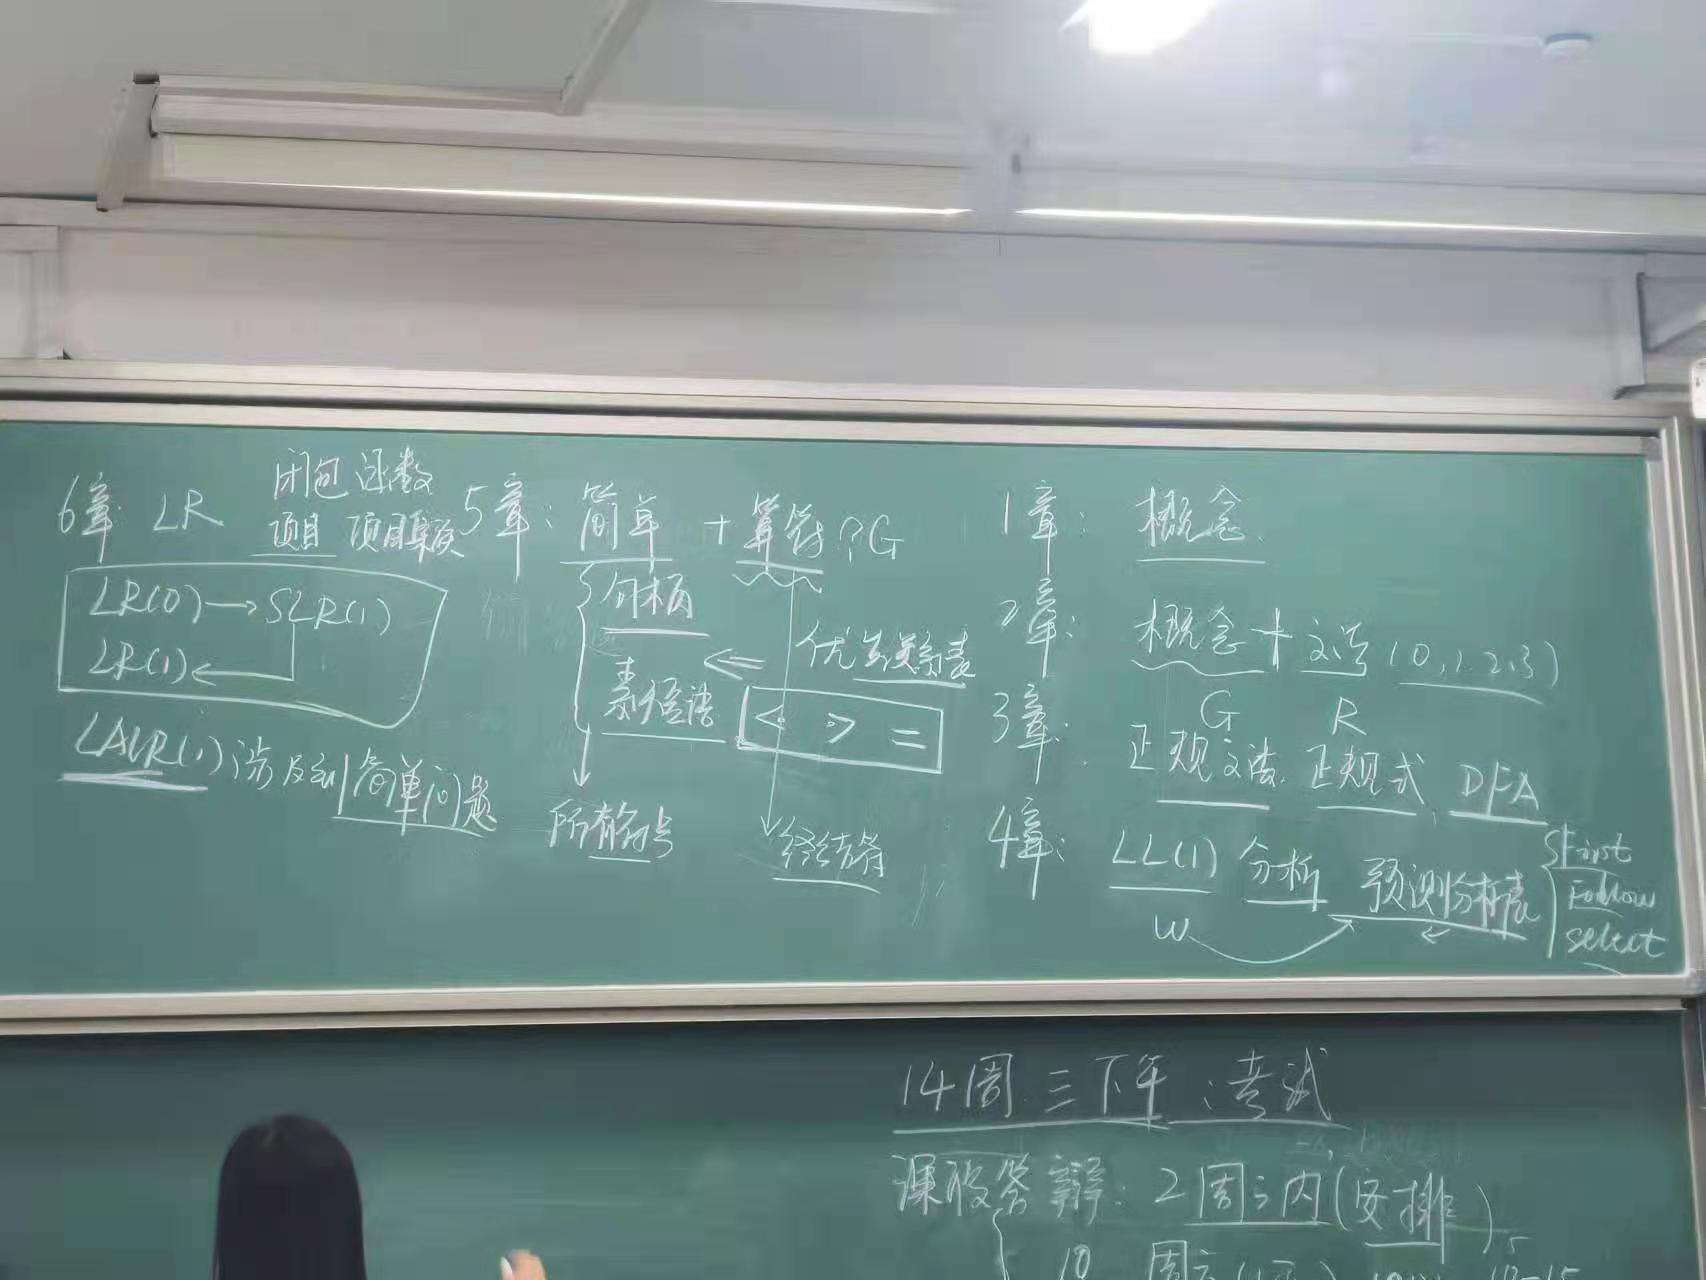 6章 LR 闭包 函数
项目 项目集族
LR(0)→SLR(1)
LR(1)
LALR(1)涉及到简单问题
5章: 简单 + 算符 G
句柄
优先关系表
素短语
< > =
所有符号
终结符
1章: 概念
2章: 概念+文法(0,1,2,3)
G R
3章: 正规文法 正规式, DFA
4章: LL(1) 分析 预测分析表
First
Follow
select
W
14周 三下午:考试
课设答辩: 2周之内(安排)